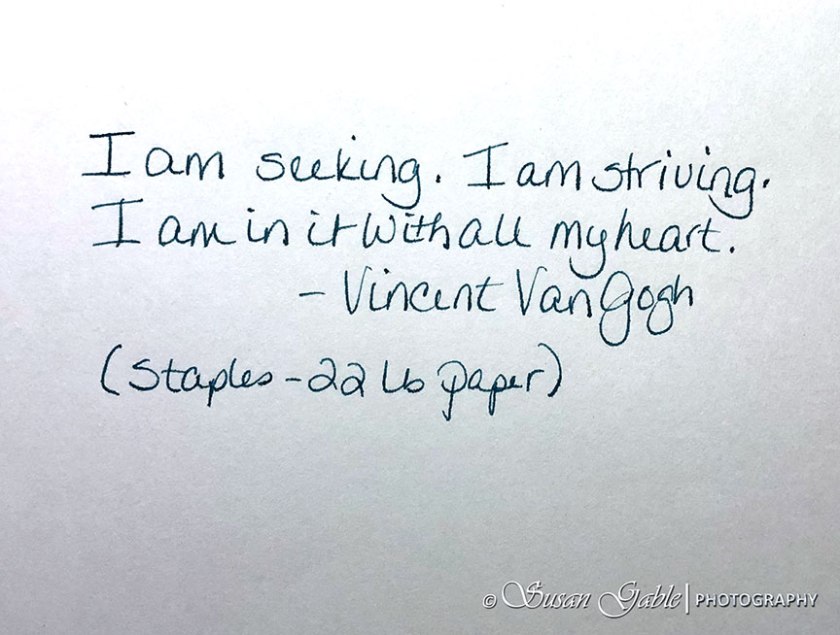 I am seeking. I am striving.
I am in it with all my heart.
- Vincent Van Gogh
(Staples - 22 Lb paper)
© Susan Gable | PHOTOGRAPHY